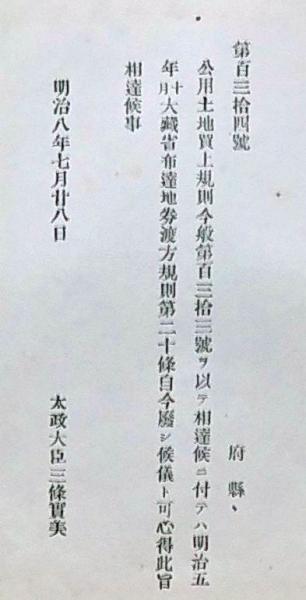 第百三拾四號
府縣へ
公用土地買上規則今般第百三拾二號ヲ以テ相達候ニ付テハ明治五
年十月大藏省布達地劵渡方規則第二十條自今廢シ候儀ト可心得此旨
相達候事
明治八年七月廿八日
太政大臣三條實美